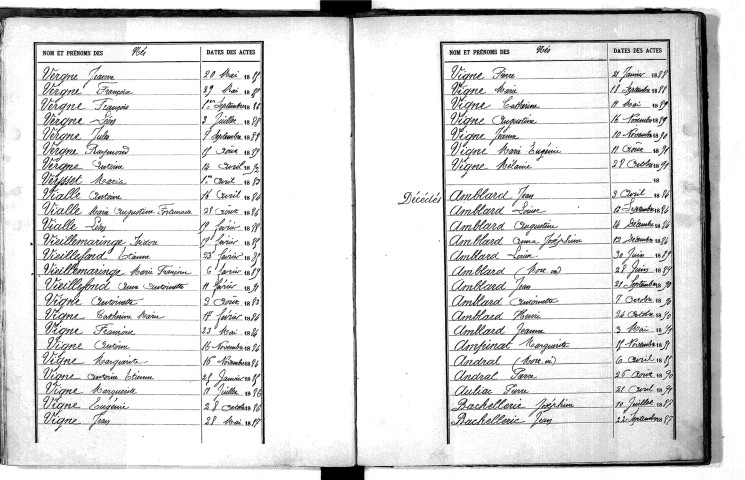 NOM ET PRÉNOMS DES Nés DATES DES ACTES
Vergne Jeanne 20 Mai 18
Vergne Françoise 29 Mai 18
Vergne François 1er Septembre 18
Vergne Léon 3 Juillet 18
Vergne Jules 7 Septembre 18
Vergne Raymond Août 18
Vergne Antoine 14 Avril 18
Veysset Maria 1er Avril 18
Vialle Antoine 16 Avril 1886
Vialle Marie Augustine 28 Août 1886
Vialle Léon février 18
Vieillemaringe février 18
Vieillefond Etienne février 18
Vieillemaringe Marie Françoise 6 février 1889
Vieillefond Anna Antoinette 11 février 18
Vignle Antoinette 9 Août 1883
Vigne Catherine Marie 17 février 1884
Vigne Françoise 23 Mai 1884
Vigne Antoine 15 Novembre 1884
Vigne Marguerite 15 Novembre 1884
Vigne Antoine Etienne Janvier 18
Vigne Marguerite 11 Juillet 1886
Vigne Eugénie 28 Octobre 1886
Vigne Jean 28 Mai 1887
NOM ET PRÉNOMS DES Nés DATES DES ACTES
Vigne Pierre 21 Janvier 1888
Vigne Marie 18 Septembre 1888
Vigne Catherine 11 Mai 1889
Vigne Augustine 16 Novembre 1889
Vigne Jeanne 10 Novembre 1890
Vigne Marie Eugénie 11 Août 1891
Vigne Mélanie 28 Octobre 18
18
Décédés
Amblard Jean 3 Avril 1884
Amblard Louise Septembre 1884
Amblard Augustine 14 Décembre 1884
Amblard Anna Joséphine 12 Décembre 1884
Amblard Louise 30 Juin 18
Amblard (Mort né) 28 Juin 18
Amblard Jean 21 Septembre 1890
Amblard Antoinette 7 Octobre 1890
Amblard Henri 24 Octobre 1890
Amblard Jeanne 3 Mai 1891
Ampinat Marguerite Novembre 18
Andral (Mort né) 6 Avril 1885
Andral Pierre 26 Août 1890
Auliac Pierre 21 Avril 1891
Bachellerie Joséphine 10 Juillet 1887
Bachellerie Jean 22 Septembre 1887